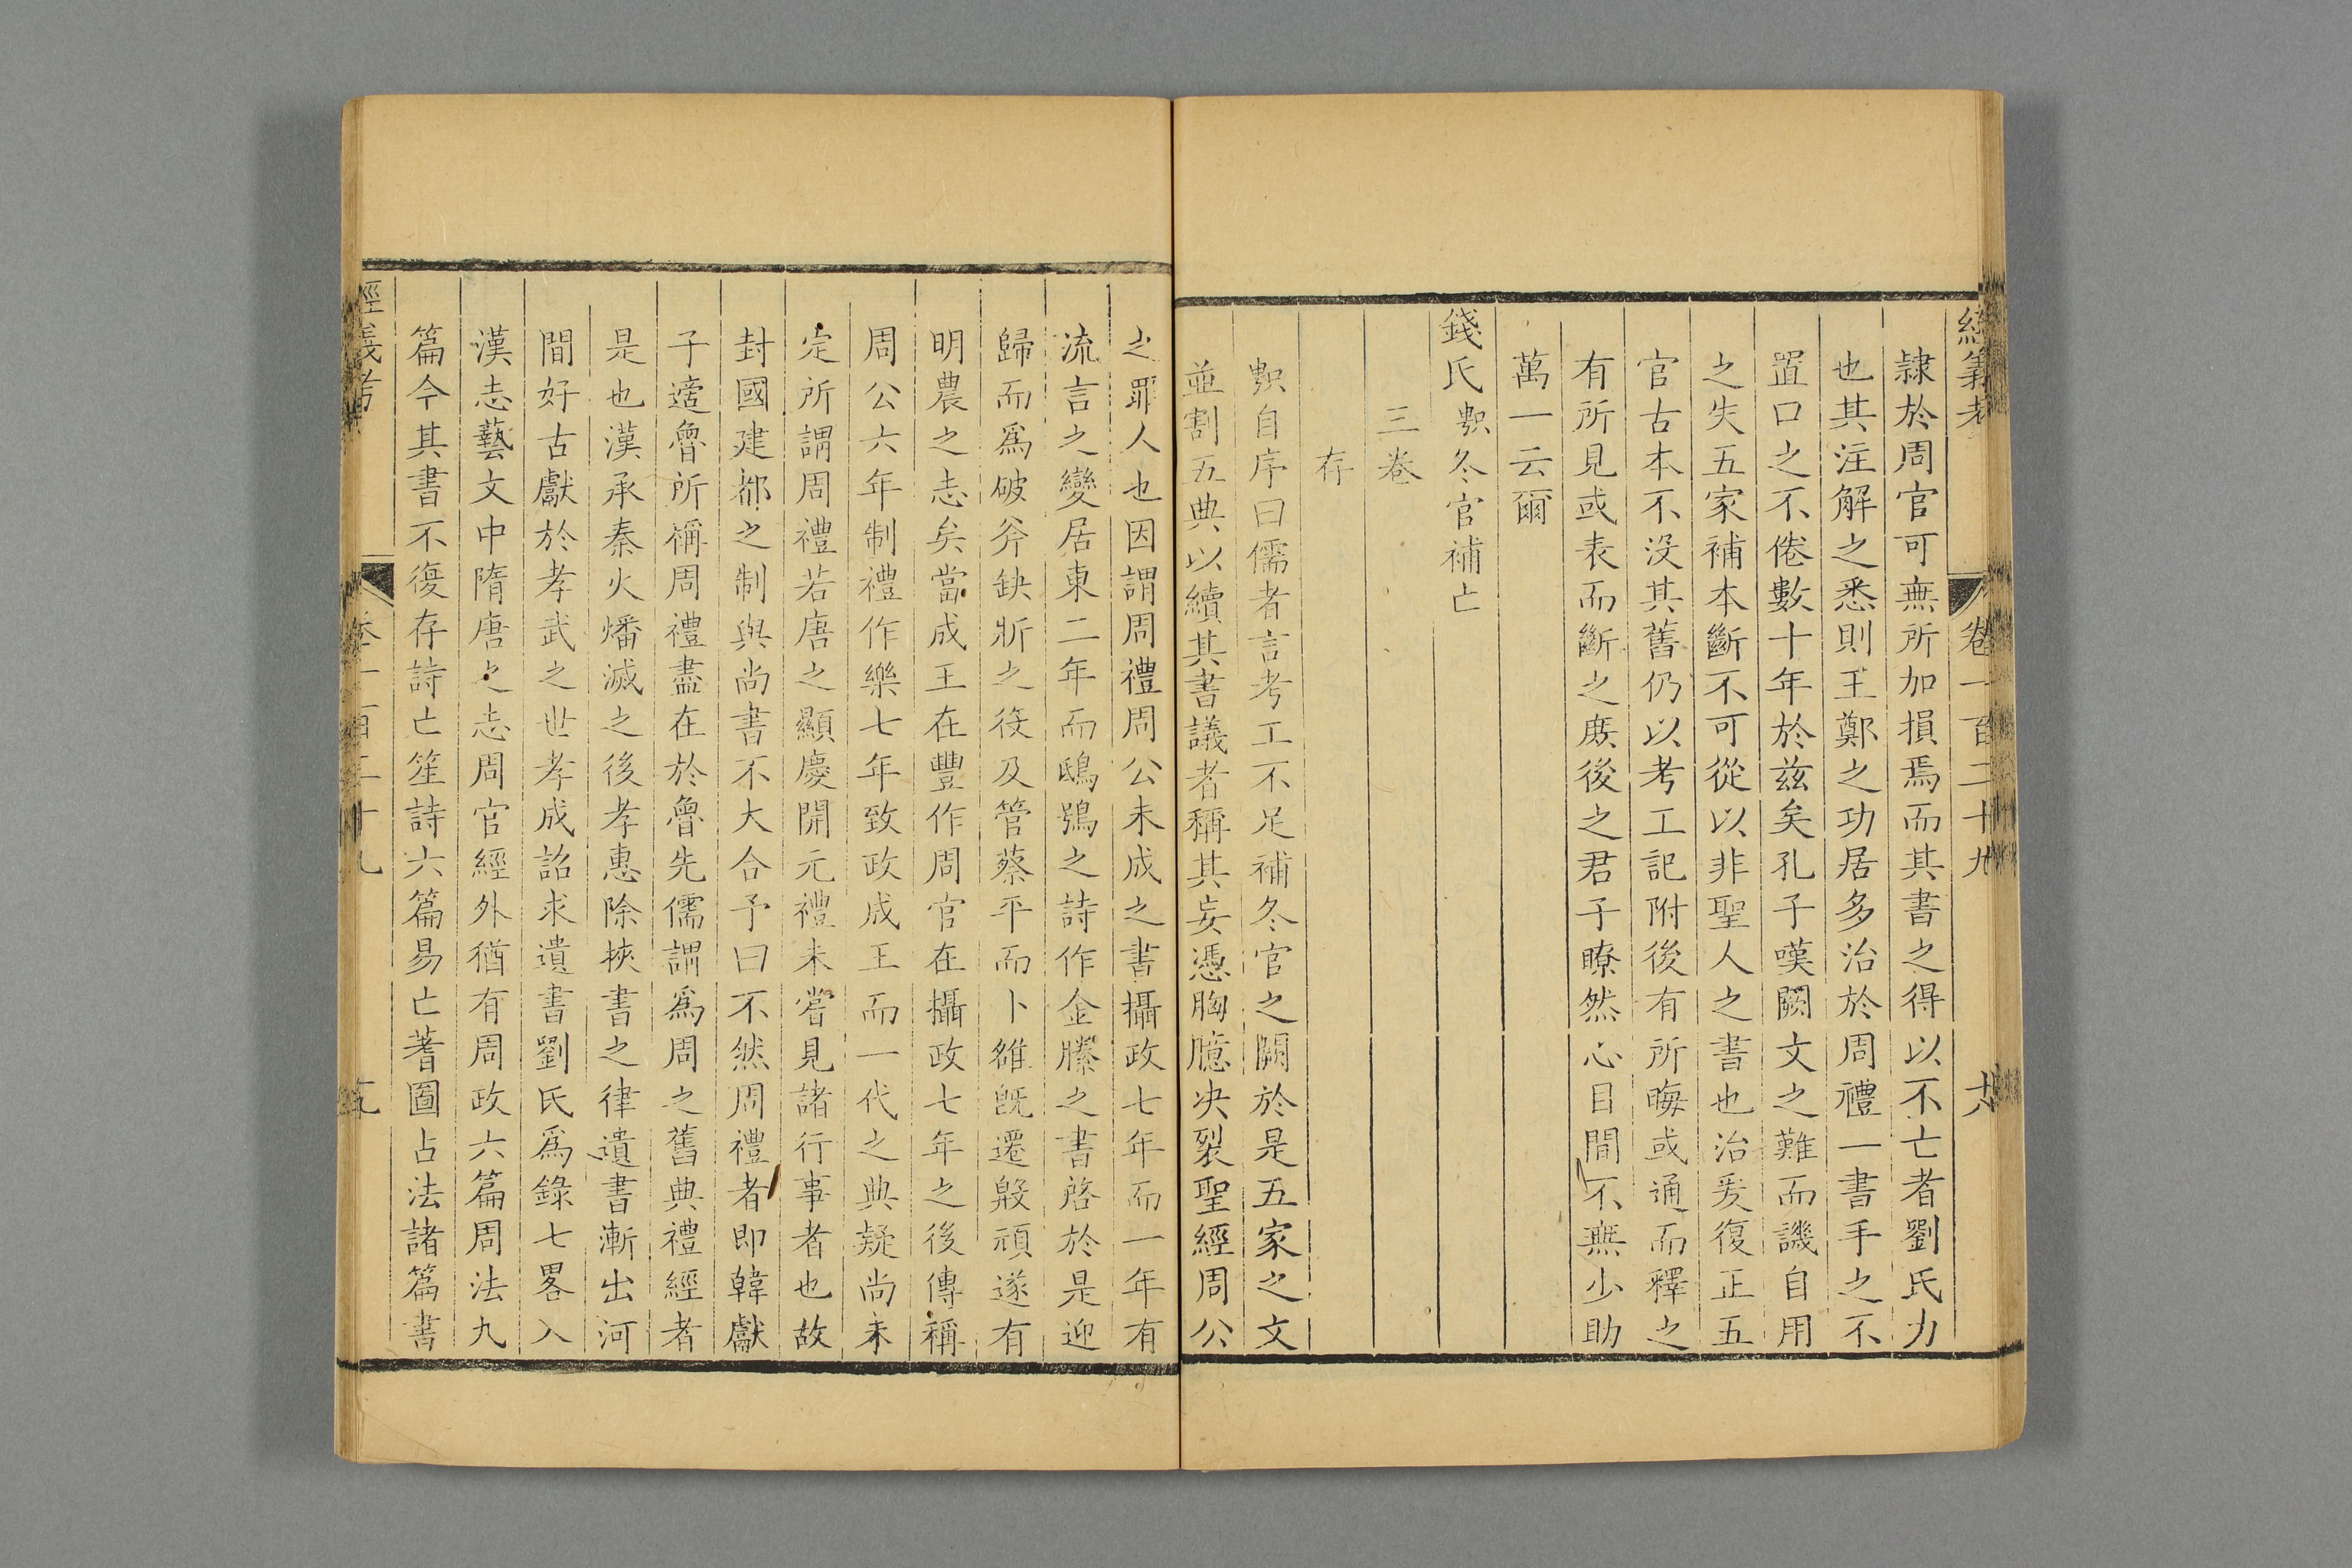 經義考 卷一百二十九 十六
隷於周官可無所加損焉而其書之得以不亡者劉氏力
也其注解之悉則王鄭之功居多治於周禮一書手之不
置口之不倦數十年於兹矣孔子嘆闕文之難而譏自用
之失五家補本斷不可從以非聖人之書也治爰復正五
官古本不没其舊仍以考工記附後有所晦或通而釋之
有所見或表而斷之庶後之君子瞭然心目間不無少助
萬一云爾
錢氏㪚冬官補亡
三卷
存
㪚自序曰儒者言考工不足補冬官之闕於是五家之文
並割五典以續其書議者稱其妄憑胸臆决裂聖經周公
之罪人也因謂周禮周公未成之書攝政七年而一年有
流言之變居東二年而鴟鴞之詩作金縢之書啓於是迎
歸而爲破斧缺斨之役及管蔡平而卜雒旣遷殷頑遂有
明農之志矣當成王在豐作周官在攝政七年之後傳稱
周公六年制禮作樂七年致政成王而一代之典疑尚未
定所謂周禮若唐之顯慶開元禮未嘗見諸行事者也故
封國建都之制與尚書不大合予曰不然周禮者即韓獻
子適魯所稱周禮盡在於魯先儒謂爲周之舊典禮經者
是也漢承秦火燔滅之後孝惠除挾書之律遺書漸出河
間好古獻於孝武之世孝成詔求遺書劉氏爲錄七畧入
漢志藝文中隋唐之志周官經外猶有周政六篇周法九
篇今其書不復存詩亡笙詩六篇易亡蓍圖占法諸篇書
經義考 卷一百二十九